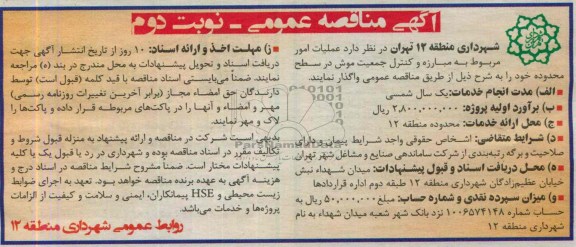 آگهی مناقصه عمومی - نوبت دوم
شهرداری منطقه ۱۲ تهران در نظر دارد عملیات امور
مربوط به مبارزه و کنترل جمعیت موش در سطح
محدوده خود را به شرح ذیل از طریق مناقصه عمومی واگذار نماید.
■ الف) مدت انجام خدمات: یک سال شمسی
■ ب) برآورد اولیه پروژه: ۲,۸۰۰,۰۰۰,۰۰۰ ریال
■ ج) محل ارائه خدمات: محدوده منطقه ۱۲
■ د) شرایط متقاضی: اشخاص حقوقی واجد شرایط پیمان و دارای
صلاحیت و برگه رتبه‌بندی از شرکت ساماندهی صنایع و مشاغل شهر تهران
■ ه) محل دریافت اسناد و قبول پیشنهادات: میدان شهداء، نبش
خیابان عظیم‌زادگان شهرداری منطقه ۱۲ طبقه دوم اداره قراردادها
■ و) میزان سپرده نقدی و شماره حساب: مبلغ ۵۰,۰۰۰,۰۰۰ ریال به
حساب شماره ۱۰۰۶۵۷۴۱۴۸ نزد بانک شهر شعبه میدان شهداء به نام
شهرداری منطقه ۱۲
■ ز) مهلت اخذ و ارائه اسناد: ۱۰ روز از تاریخ انتشار آگهی جهت
دریافت اسناد و تحویل پیشنهادات به محل مندرج در بند (ه) مراجعه
نمایند. ضمناً می‌بایستی اسناد مناقصه با قید کلمه (قبول است) توسط
دارندگان حق امضاء مجاز (برابر آخرین تغییرات روزنامه رسمی)
مهر و امضاء و آنها را در پاکت‌های مربوطه قرار داده و پاکت‌ها را
لاک و مهر نمایند.
بدیهی است شرکت در مناقصه و ارائه پیشنهاد به منزله قبول شروط و
تکالیف مقرر در اسناد مناقصه بوده و شهرداری در رد یا قبول یک یا کلیه
پیشنهادات مختار است. ضمناً مشروح شرایط مناقصه در اسناد درج و
هزینه آگهی به عهده برنده مناقصه خواهد بود. تعهد به اجرای ضوابط
زیست محیطی و HSE پیمانکاران، ایمنی و سلامت و کیفیت از الزامات
پروژه‌ها و خدمات می‌باشد.
روابط عمومی شهرداری منطقه ۱۲